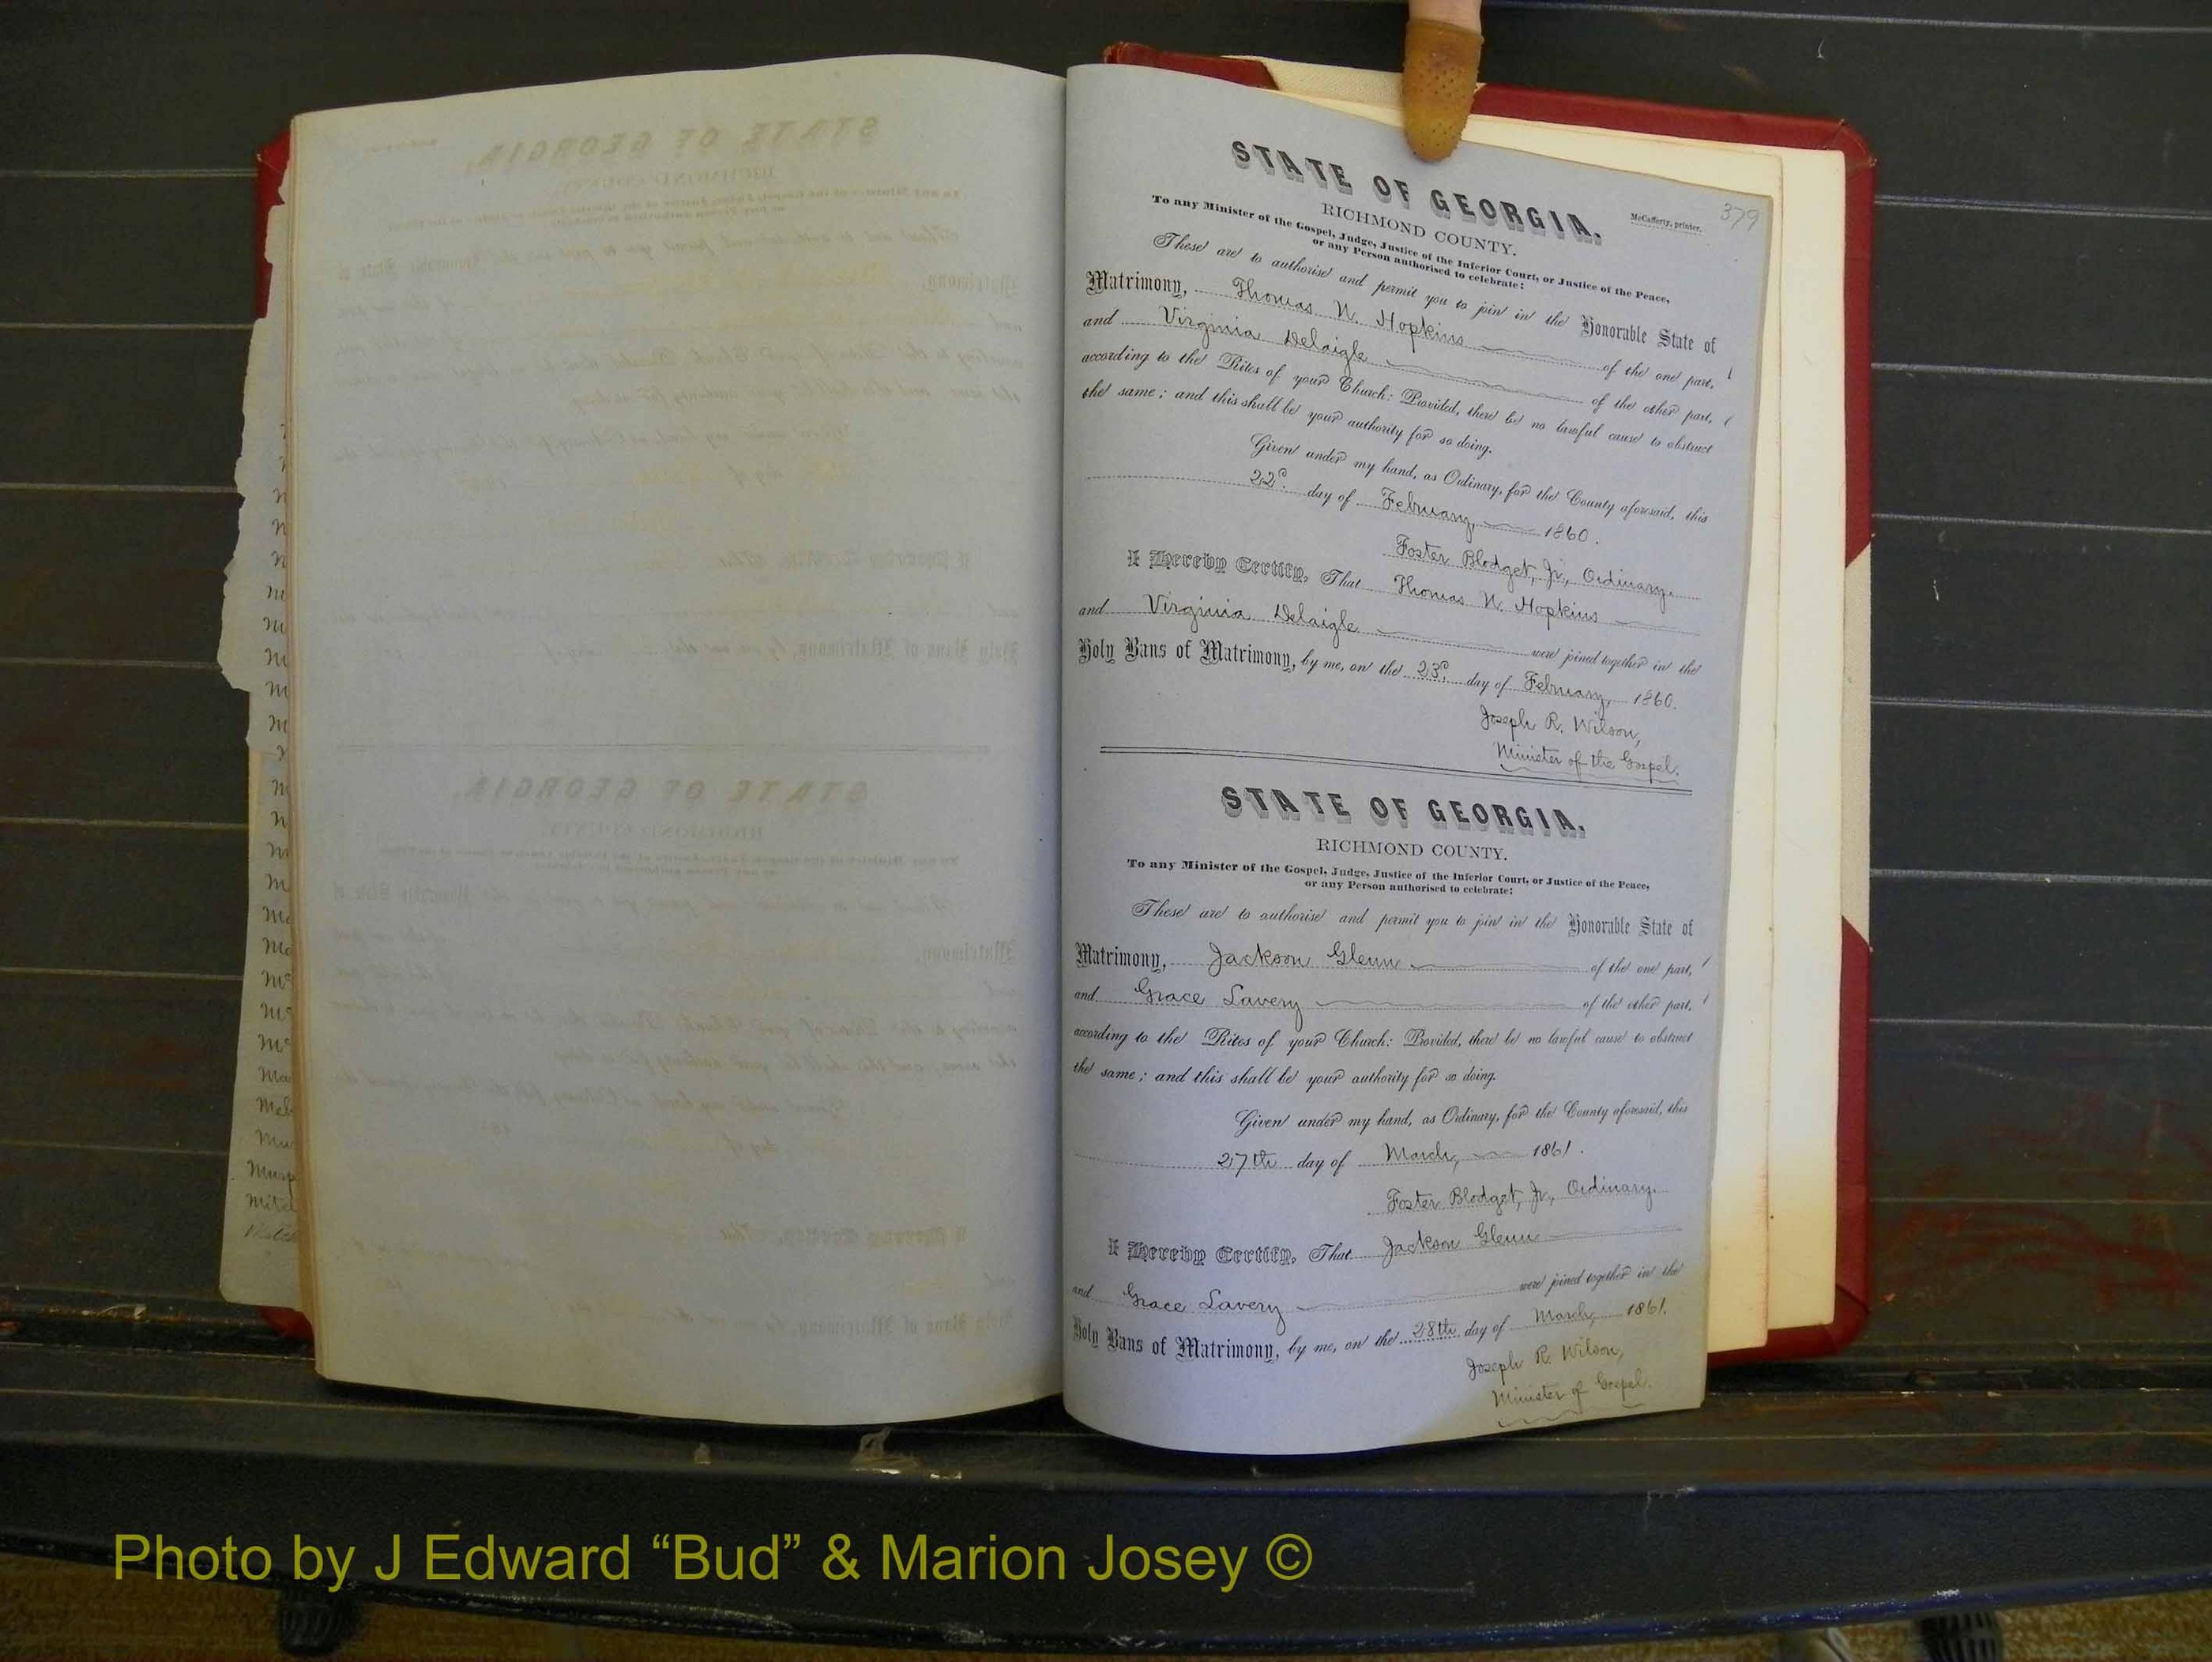 379
McCafferty, printer.
STATE OF GEORGIA.
RICHMOND COUNTY.
To any Minister of the Gospel, Judge, Justice of the Inferior Court, or Justice of the Peace,
or any Person authorised to celebrate:
These are to authorise and permit you to join in the Honorable State of
Matrimony, Thomas N. Hopkins of the one part,
and Virginia Delaigle of the other part,
according to the Rites of your Church: Provided, there be no lawful cause to obstruct
the same; and this shall be your authority for so doing.
Given under my hand, as Ordinary, for the County aforesaid, this
22d. day of February, 1860.
Foster Blodget, Jr., Ordinary.
I Hereby Certify, That Thomas N. Hopkins
and Virginia Delaigle were joined together in the
Holy Bans of Matrimony, by me, on the 23d. day of February, 1860.
Joseph R. Wilson,
Minister of the Gospel.
STATE OF GEORGIA.
RICHMOND COUNTY.
To any Minister of the Gospel, Judge, Justice of the Inferior Court, or Justice of the Peace,
or any Person authorised to celebrate:
These are to authorise and permit you to join in the Honorable State of
Matrimony, Jackson Glenn of the one part,
and Grace Lavery of the other part,
according to the Rites of your Church: Provided, there be no lawful cause to obstruct
the same; and this shall be your authority for so doing.
Given under my hand, as Ordinary, for the County aforesaid, this
27th day of March, 1861.
Foster Blodget, Jr., Ordinary.
I Hereby Certify, That Jackson Glenn
and Grace Lavery were joined together in the
Holy Bans of Matrimony, by me, on the 28th day of March, 1861.
Joseph R. Wilson,
Minister of Gospel.
Photo by J Edward “Bud” & Marion Josey ©